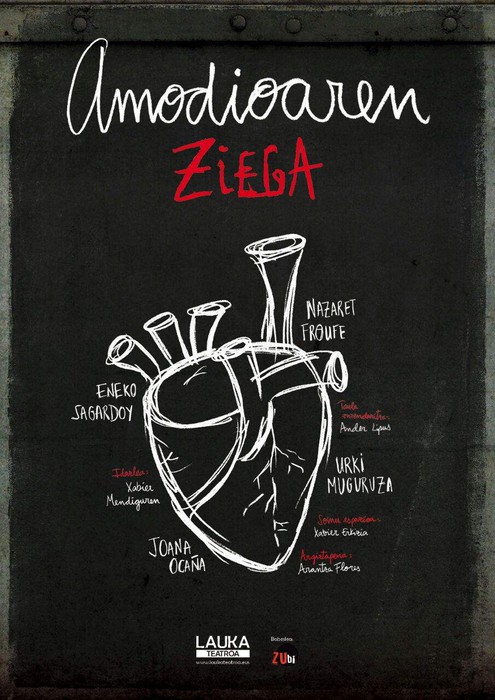 Amodioaren
ZiEGA
NAZARET
FROUFE
ENEKO
SAGARDOY
Taula
zuzendaritza:
Ander Lipus
Idazlea:
Xabier
Mendiguren
URKI
MUGURUZA
Soinu espazioa:
Xabier Erkizia
JOANA
OCAÑA
Argiztapena:
Arantza Flores
LAUKA
TEATROA
www.laukateatroa.eus
Babeslea:
ZUbi